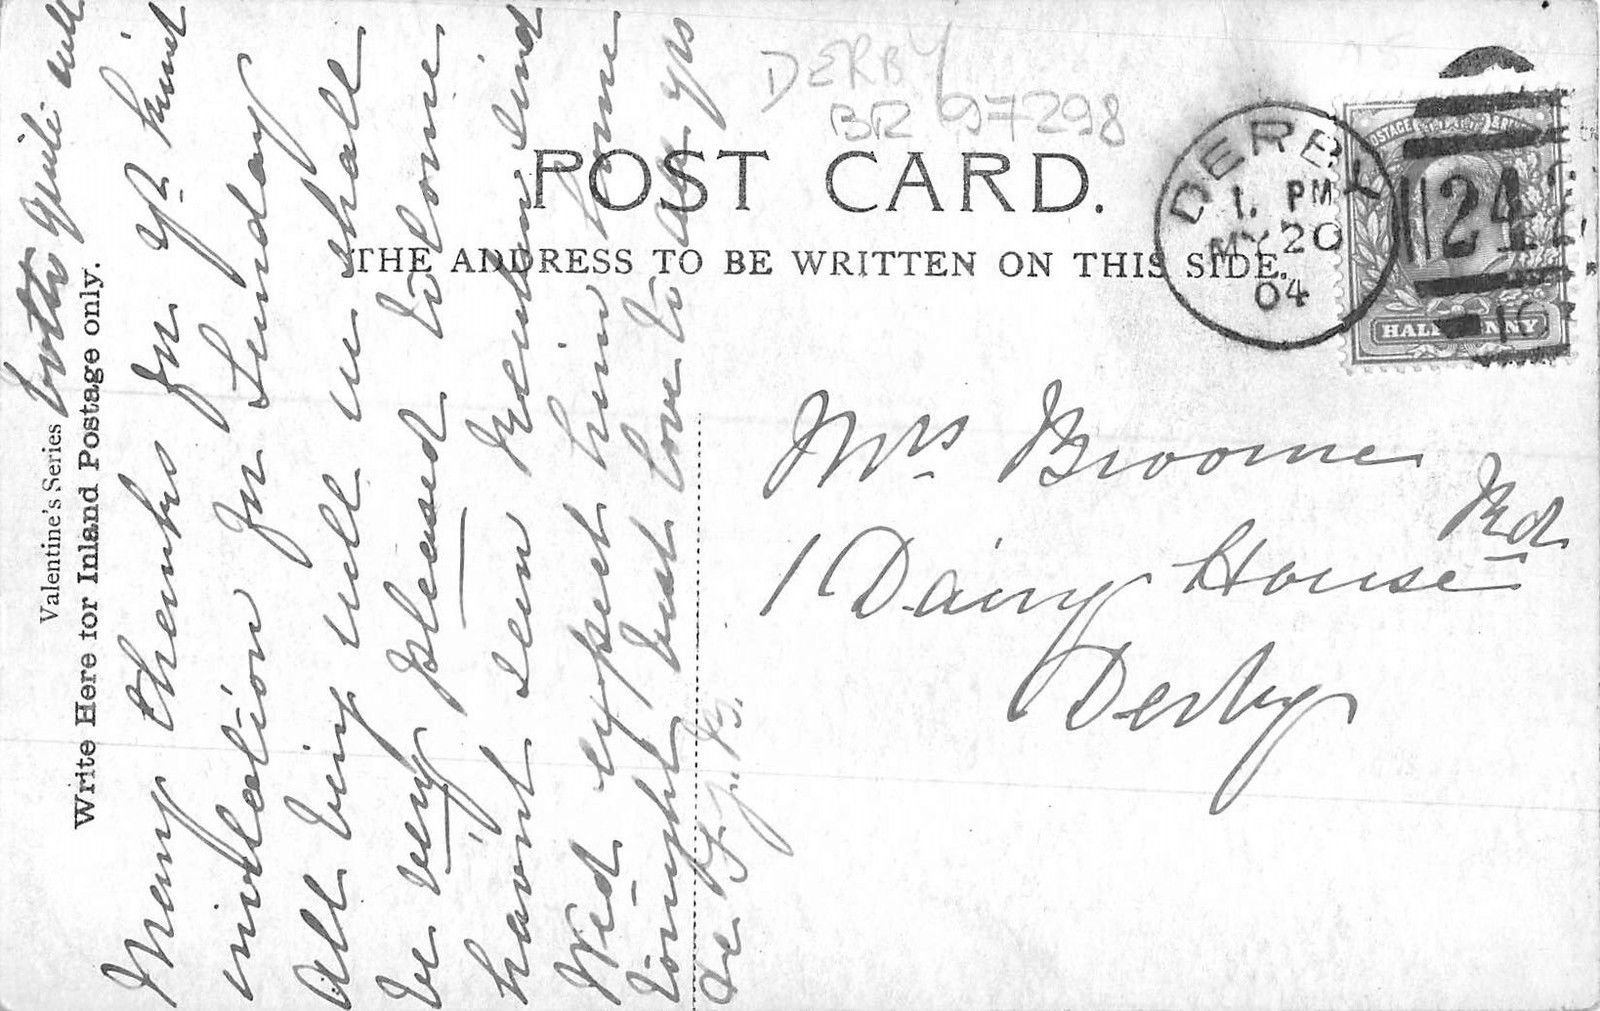 DERBY
BR 97298
POST CARD.
THE ADDRESS TO BE WRITTEN ON THIS SIDE.
DERBY
1. PM
MY 20
04
POSTAGE
HALFPENNY
242
Valentine's Series
Write Here for Inland Postage only.
both quite well
Many thanks for yr kind
invitation for Sunday
All being well we shall
be very pleased to come
havn't seen Reuben since
Wed expect him home
tonight best love to all yrs
F. J. B.
Mrs Broome
1 Dairy House Rd
Derby